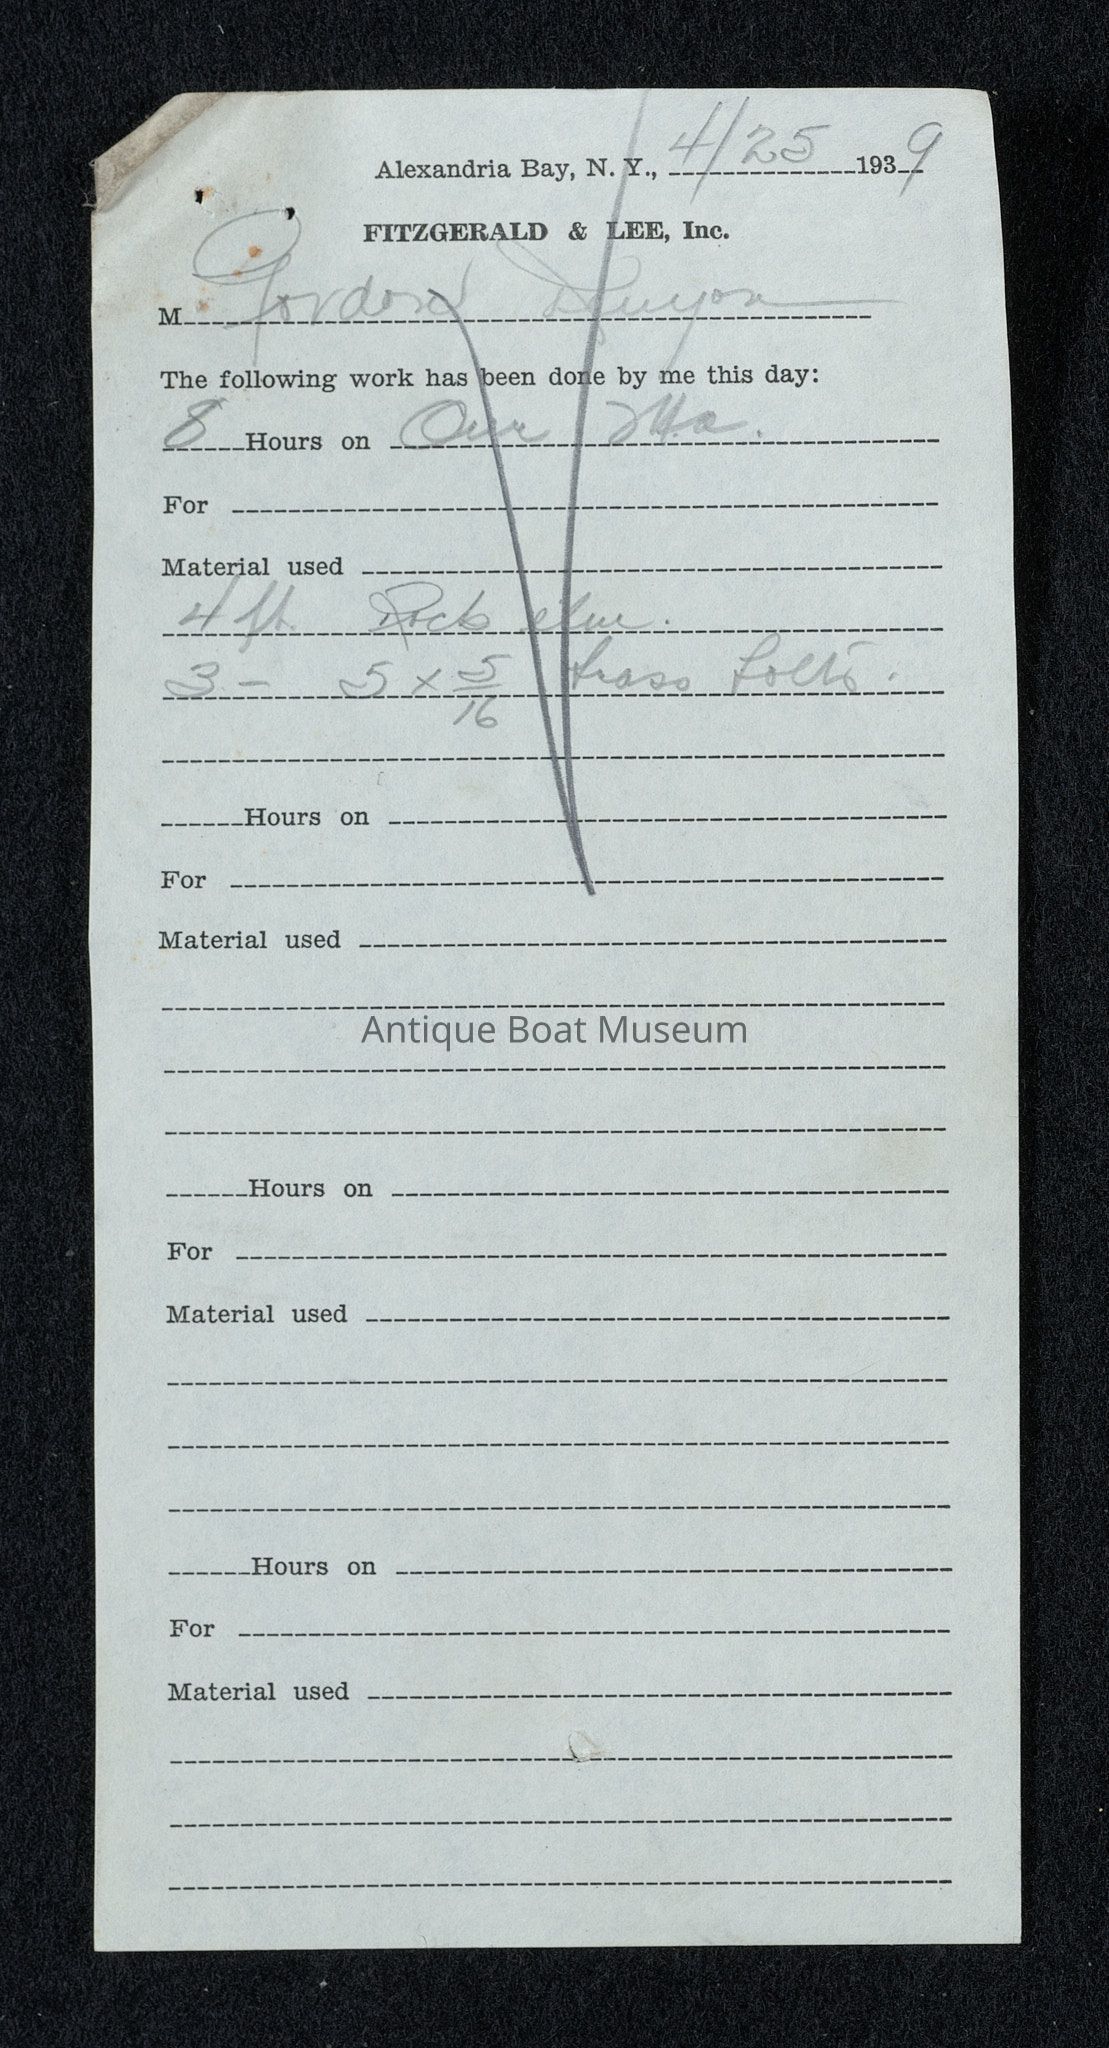 Alexandria Bay, N. Y., 4/25 1939
FITZGERALD & LEE, Inc.
M Gordon
The following work has been done by me this day:
8 Hours on Our Ma.
For
Material used
4 ft. Rock elm.
3 - 5 x 5/16 brass bolts.
Hours on
For
Material used
Antique Boat Museum
Hours on
For
Material used
Hours on
For
Material used